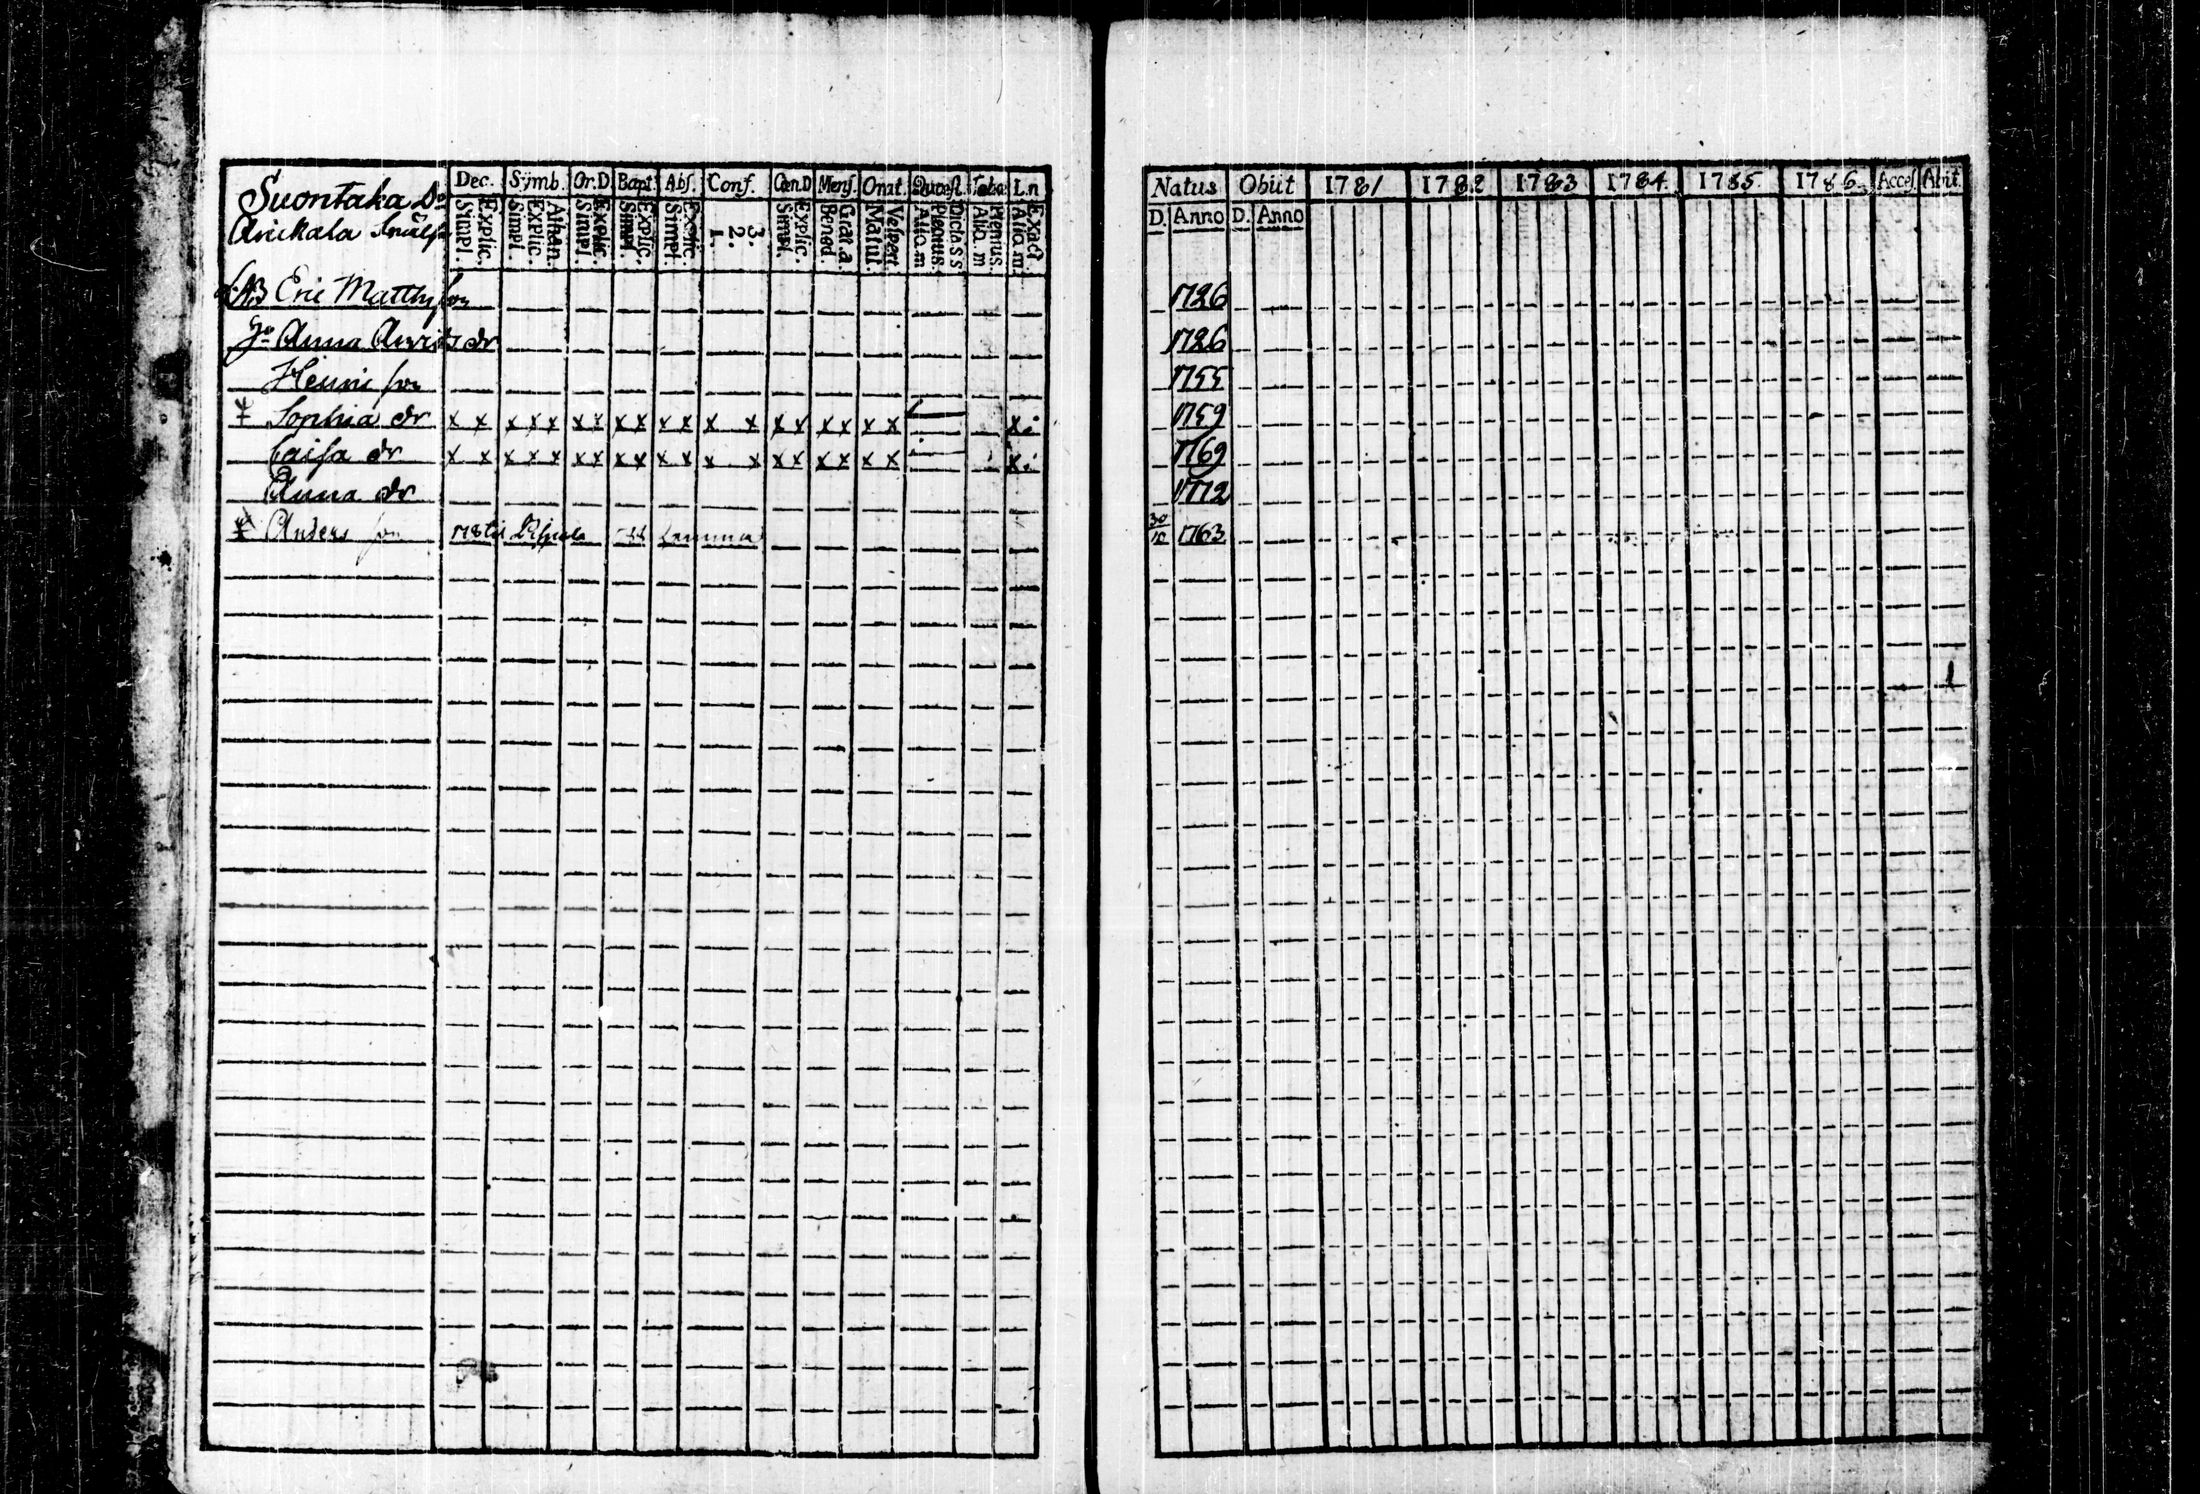 Suontaka
Arickala
Dec. Symb. Or.D Bapt. Abs. Conf. Cœn.D Mens. Orat. Quæst. Taba L.n
Simpl. Explic. Simpl. Explic. Athan. Simpl. Explic. Simpl. Explic. Simpl. Explic. 1. 2. 3. Simpl. Explic. Bened Grat.a. Matut. Vesperi. Aliq.m Plenius. Dicta S S Aliq.m Plenius. Aliq.m Exacte.
Eric Matthsson
Anna dr
Henric son
Sophia dr x x x x x x x x x x x x x x x x x x x x x
Caisa dr x x x x x x x x x x x x x x x x x x x x x
Anna dr
Anders son
Natus Obiit 1781 1782 1783 1784 1785 1786 Acces. Abiit.
D. Anno D. Anno
1726
1726
1755
1759
1769
1772
30/10 1763